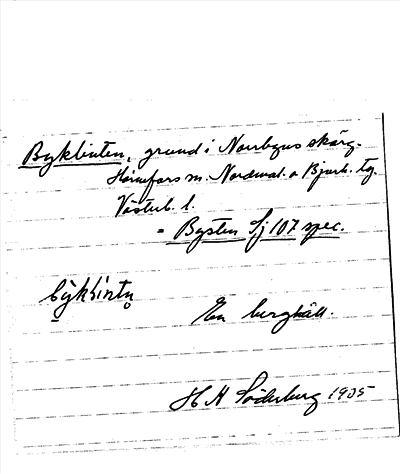 Byklinten, grund i Norrbyns skärg.
Hörnefors sn. Nordmal. o Bjurh. tg.
Västerb. l.
= Bysten Sj 107 spec.
býkḷintn̥
En berghäll.
H A Söderberg 1935